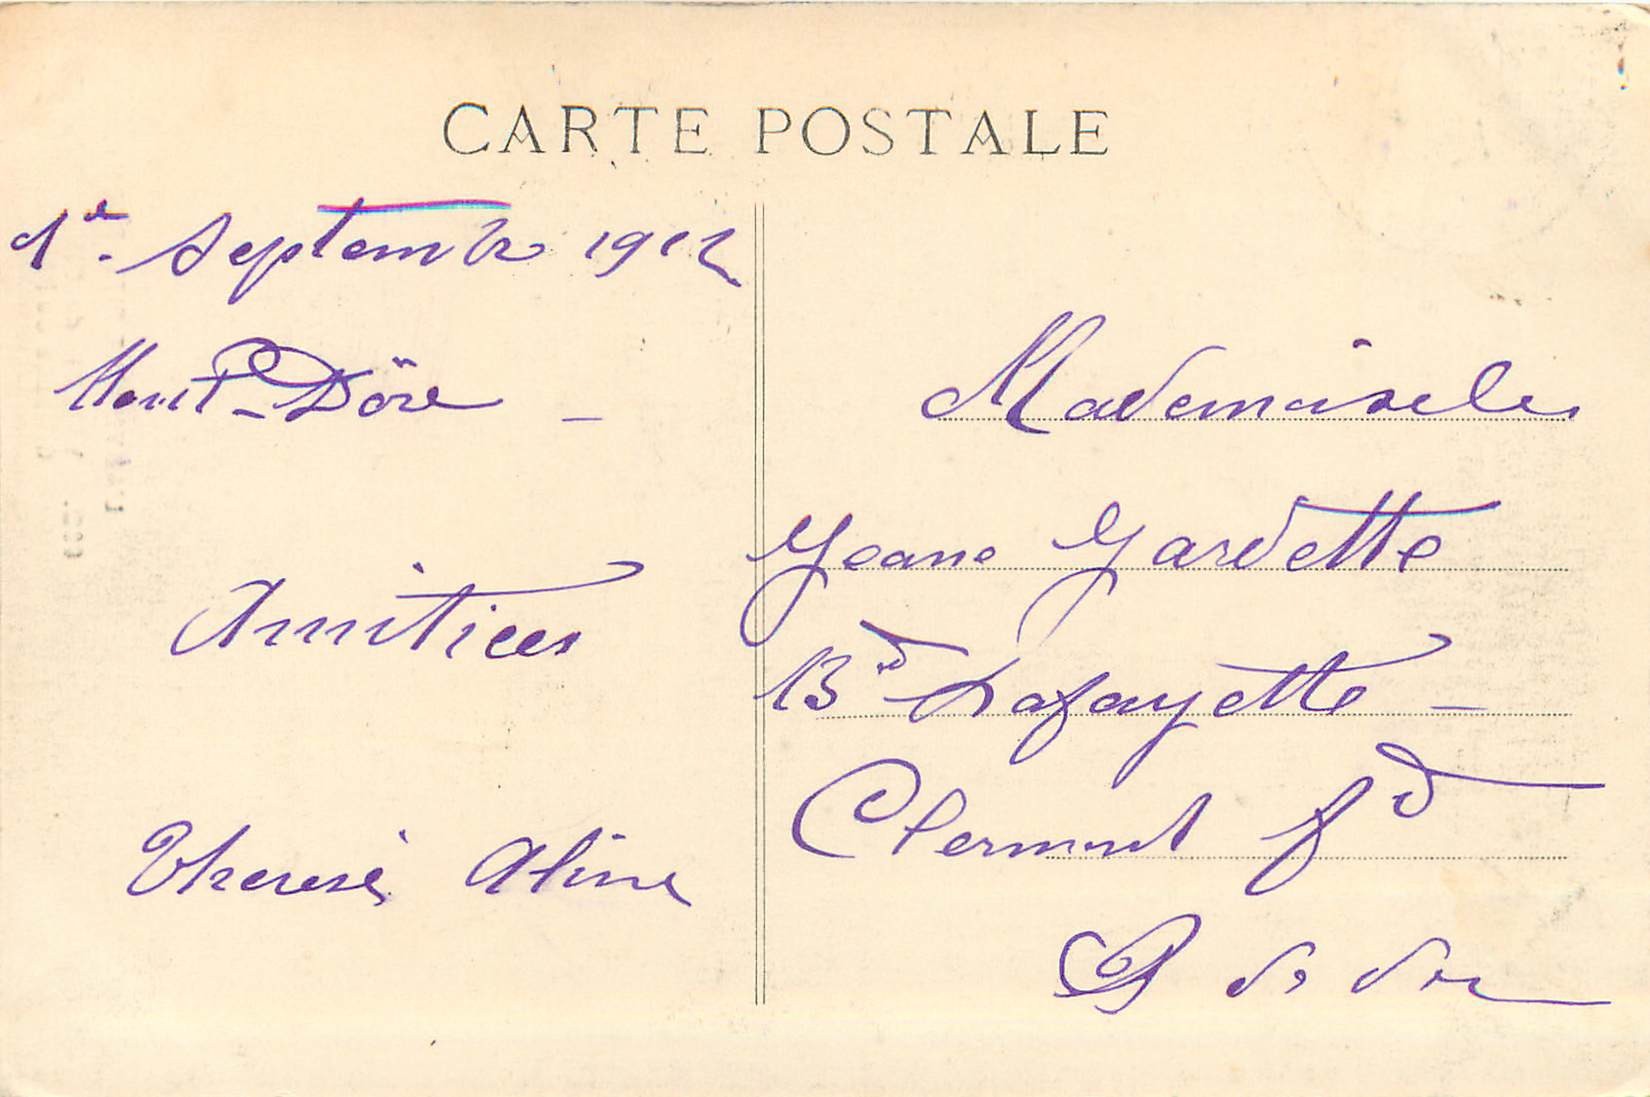 CARTE POSTALE
1er Septembre 1912
Mont-Dôre -
Amitiees
Therese Aline
Mademoisele
Jeane Gardette
Bd Lafayette -
Clermont fd
P de dome